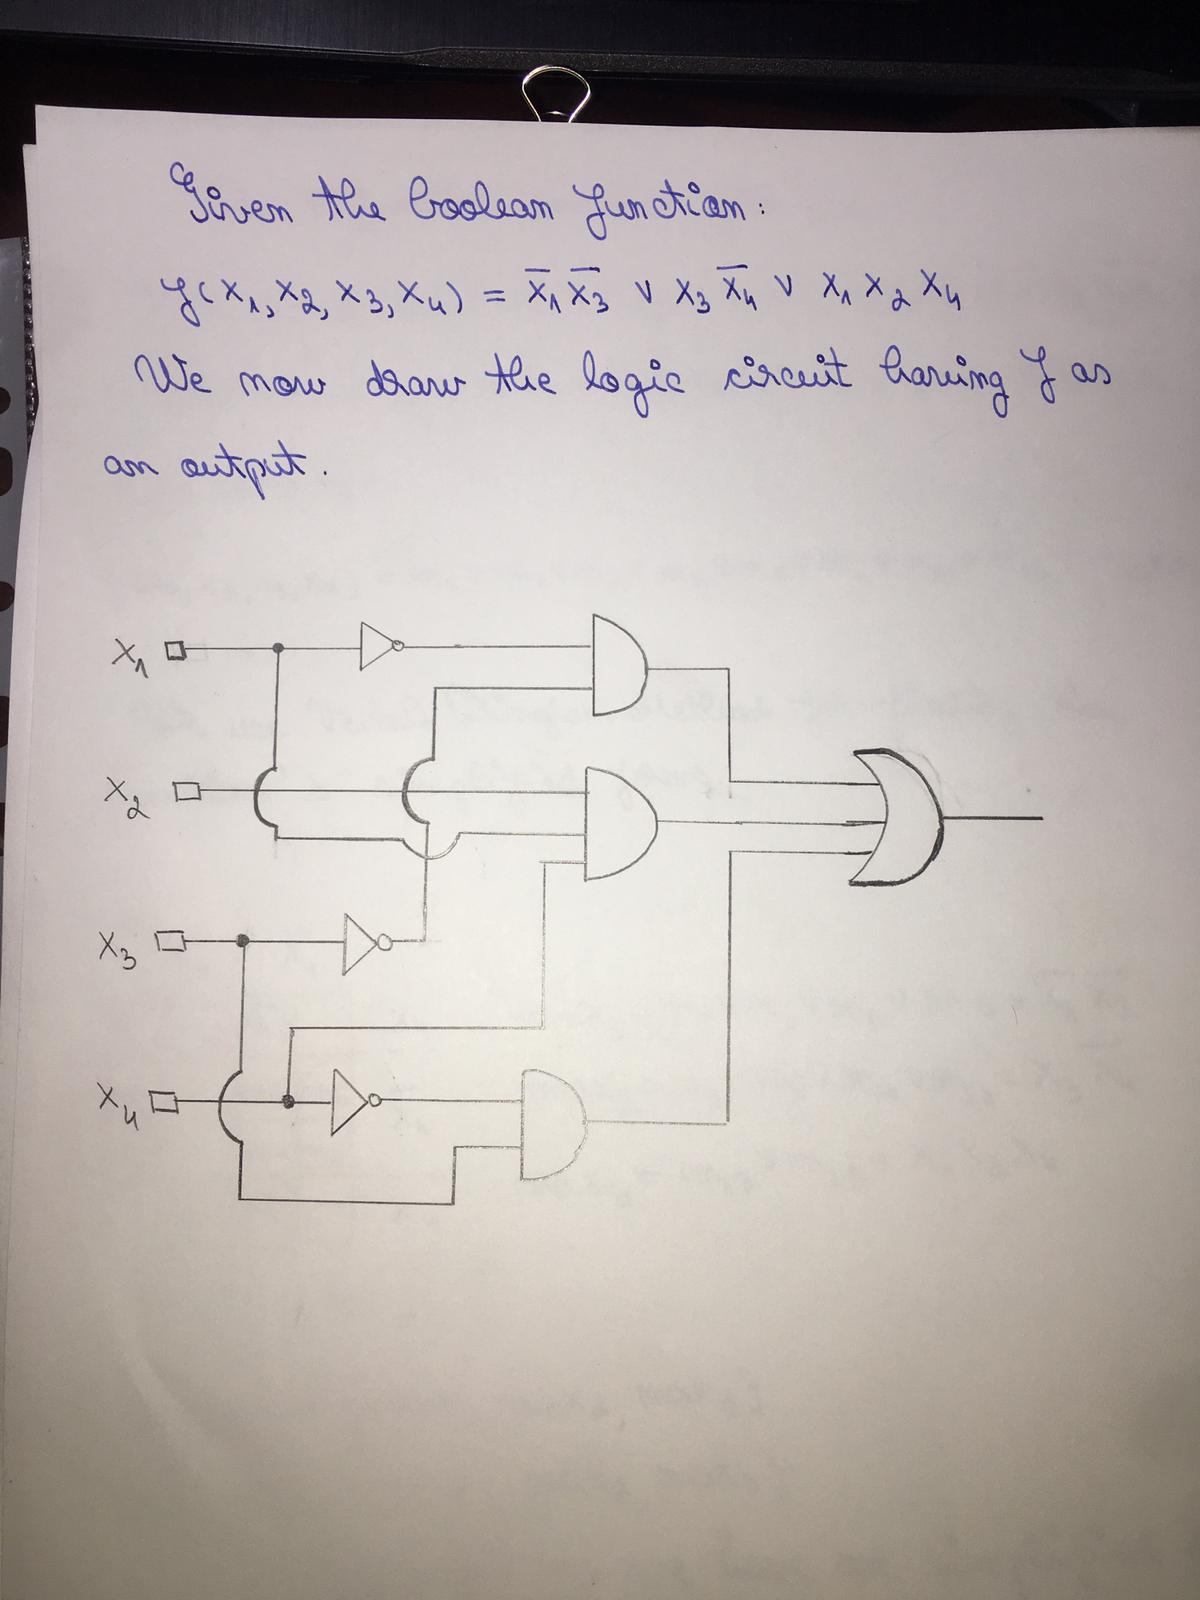 Given the boolean function:
f(x₁, x₂, x₃, x₄) = x̅₁ x̅₃ ∨ x₃ x̅₄ ∨ x₁ x₂ x₄
We now draw the logic circuit having f as
an output.
x₁
x₂
x₃
x₄